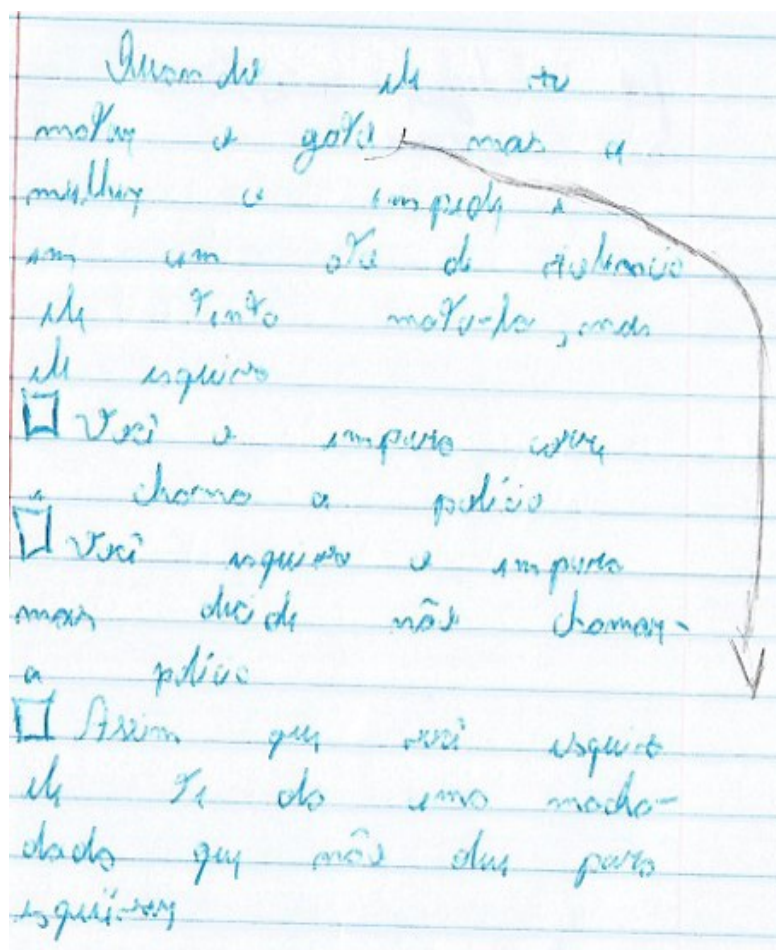 Quando ele tv
matar o gato mas a
mulher o impede e
em um ato de
ele tenta mata-la, mas
ele esquiva
Você o empura corre
e chama a polícia
Você esquiva o empura
mas decide não chamar
a polícia
Assim que você esquiva
ele te da uma macha-
dada que não deu para
esquivar